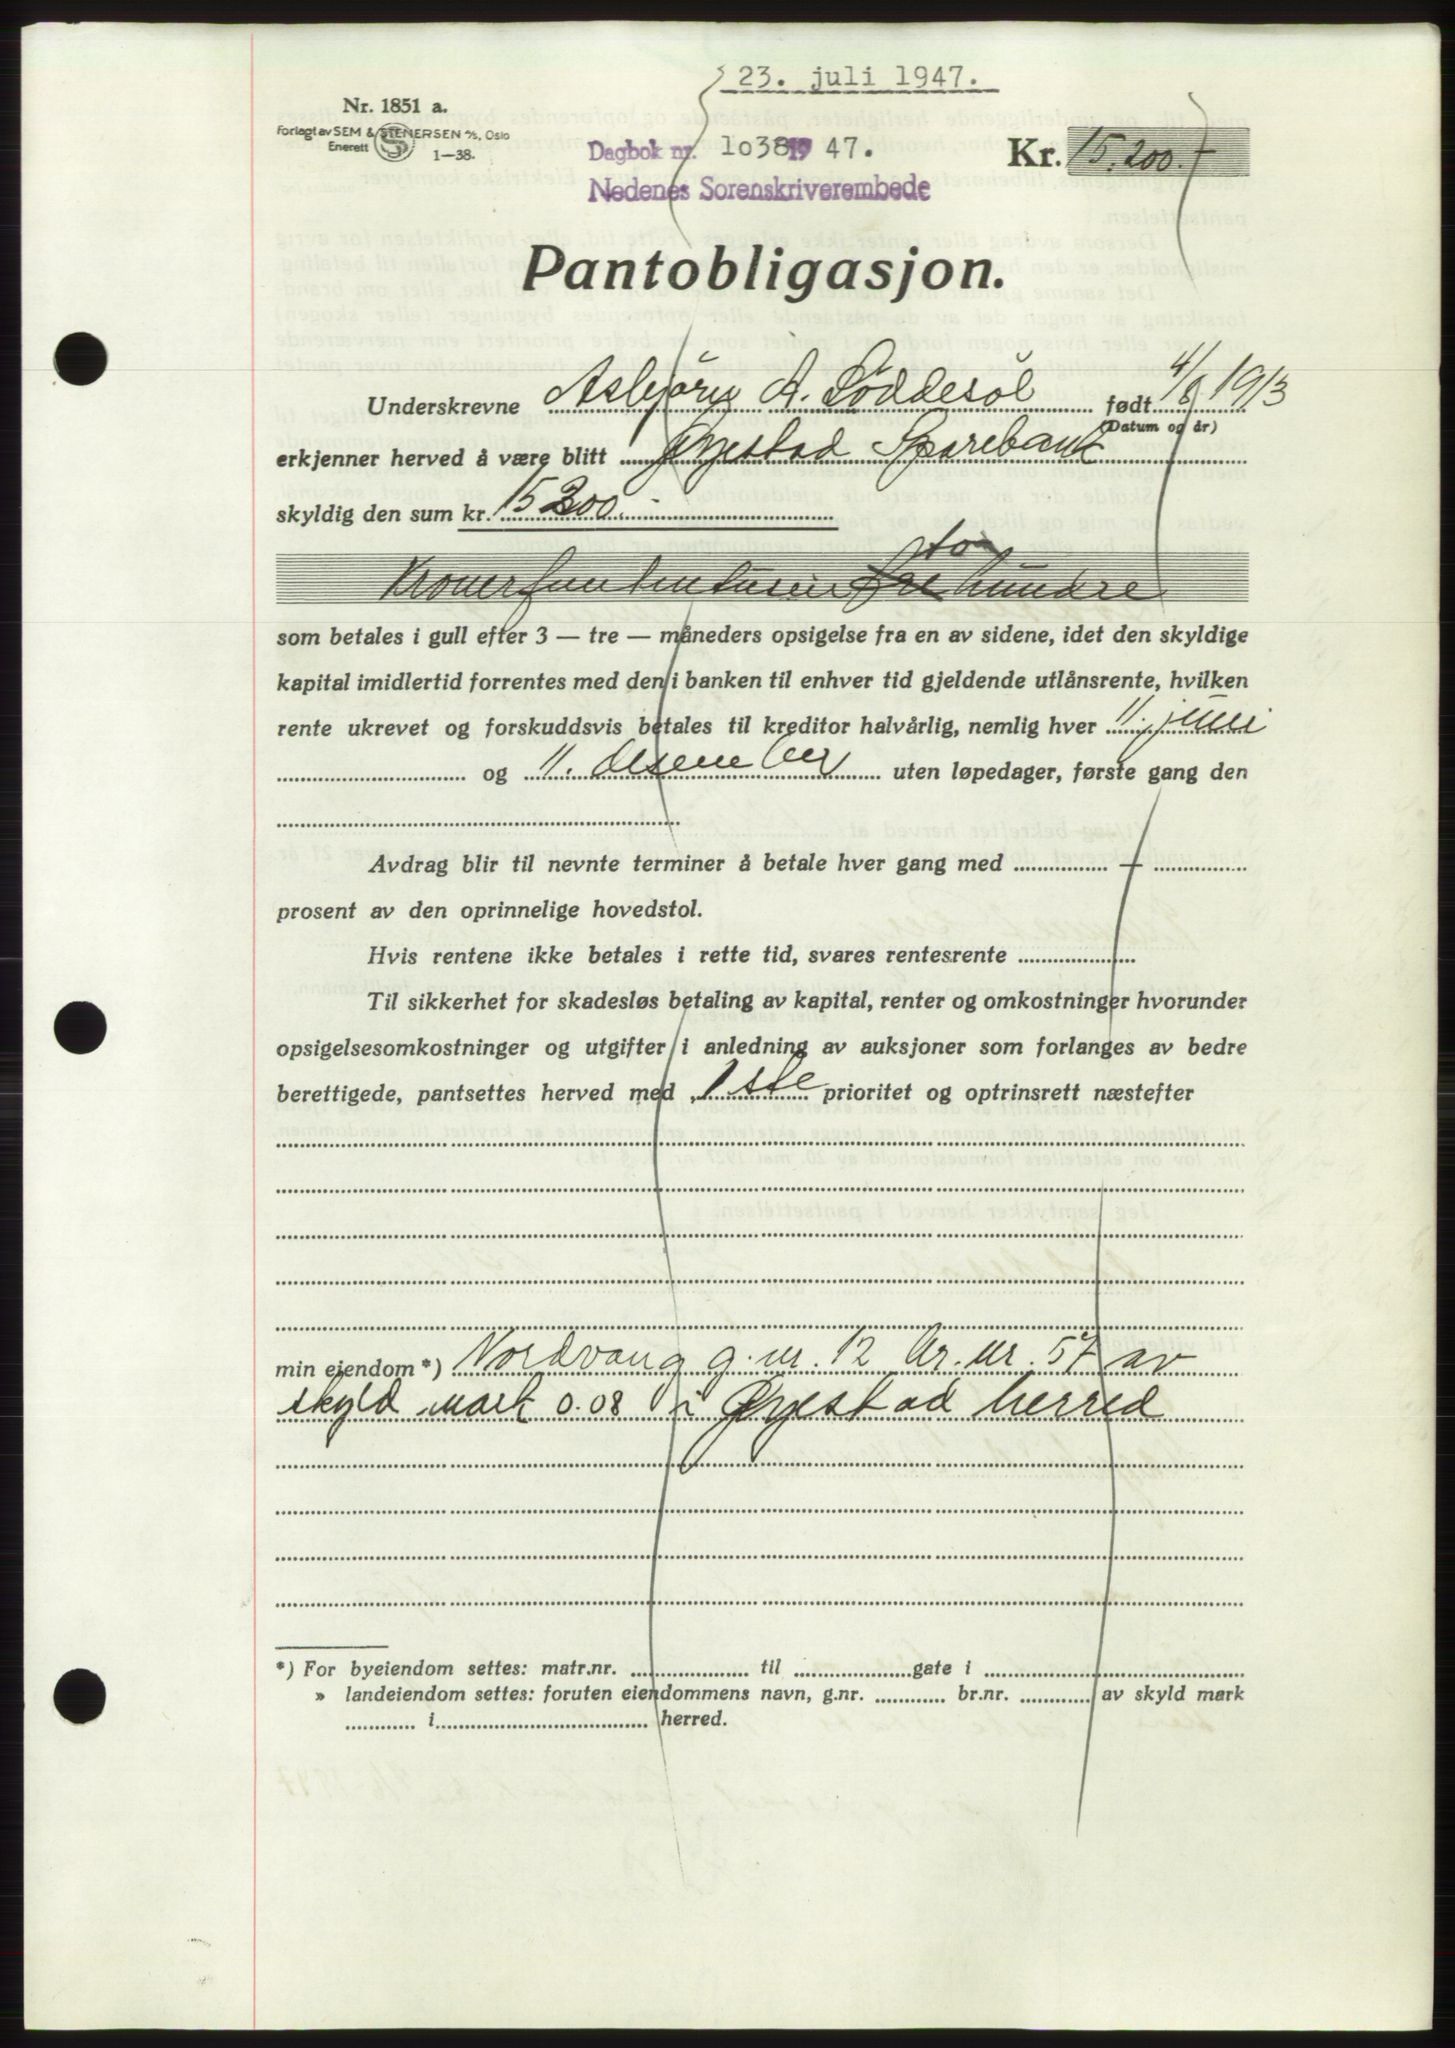 23. juli 1947.
Nr. 1851 a.
Forlagt av SEM & STENERSEN A/S, Oslo
Enerett 1-38.
Dagbok nr. 1038 1947.
Kr. 15.200.-
Nedenes Sorenskriverembede
Pantobligasjon.
Underskrevne Asbjörn A. Löddesöl født 4/8 1913
(Datum og år)
erkjenner herved å være blitt Øyestad Sparebank
skyldig den sum kr. 15200.-
Kroner femtentusen tre to hundre
som betales i gull efter 3 — tre — måneders opsigelse fra en av sidene, idet den skyldige
kapital imidlertid forrentes med den i banken til enhver tid gjeldende utlånsrente, hvilken
rente ukrevet og forskuddsvis betales til kreditor halvårlig, nemlig hver 11. juni
og 11. desember uten løpedager, første gang den
Avdrag blir til nevnte terminer å betale hver gang med —
prosent av den oprinnelige hovedstol.
Hvis rentene ikke betales i rette tid, svares rentesrente
Til sikkerhet for skadesløs betaling av kapital, renter og omkostninger hvorunder
opsigelsesomkostninger og utgifter i anledning av auksjoner som forlanges av bedre
berettigede, pantsettes herved med 1ste prioritet og optrinsrett næstefter
min eiendom *) Nordvang g.nr. 12 br.nr. 57 av
skyld mark 0.08 i Øyestad herred
*) For byeiendom settes: matr.nr. til gate i
» landeiendom settes: foruten eiendommens navn, g.nr. br.nr. av skyld mark
i herred.